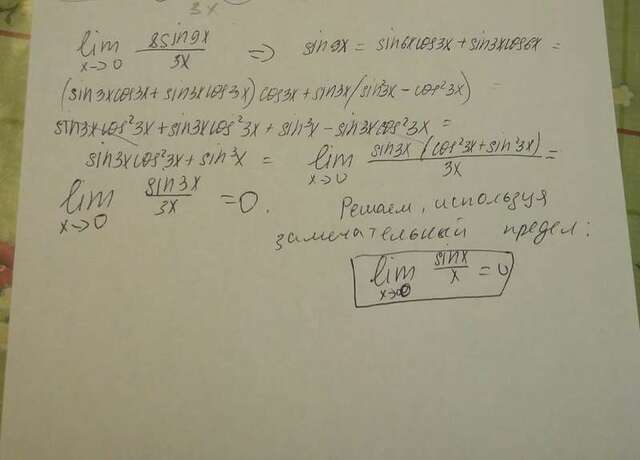 3x
lim x→0 8sin9x/3x => sin9x = sin6xcos3x + sin3xcos6x =
(sin3xcos3x + sin3xcos3x)cos3x + sin3x(sin²3x − cos²3x) =
sin3xcos²3x + sin3xcos²3x + sin³x − sin3xcos²3x =
sin3xcos²3x + sin³x = lim x→0 sin3x(cos²3x + sin²3x)/3x =
lim x→0 sin3x/3x = 0. Решаем, используя
замечательный предел:
lim x→∞ sinx/x = 0